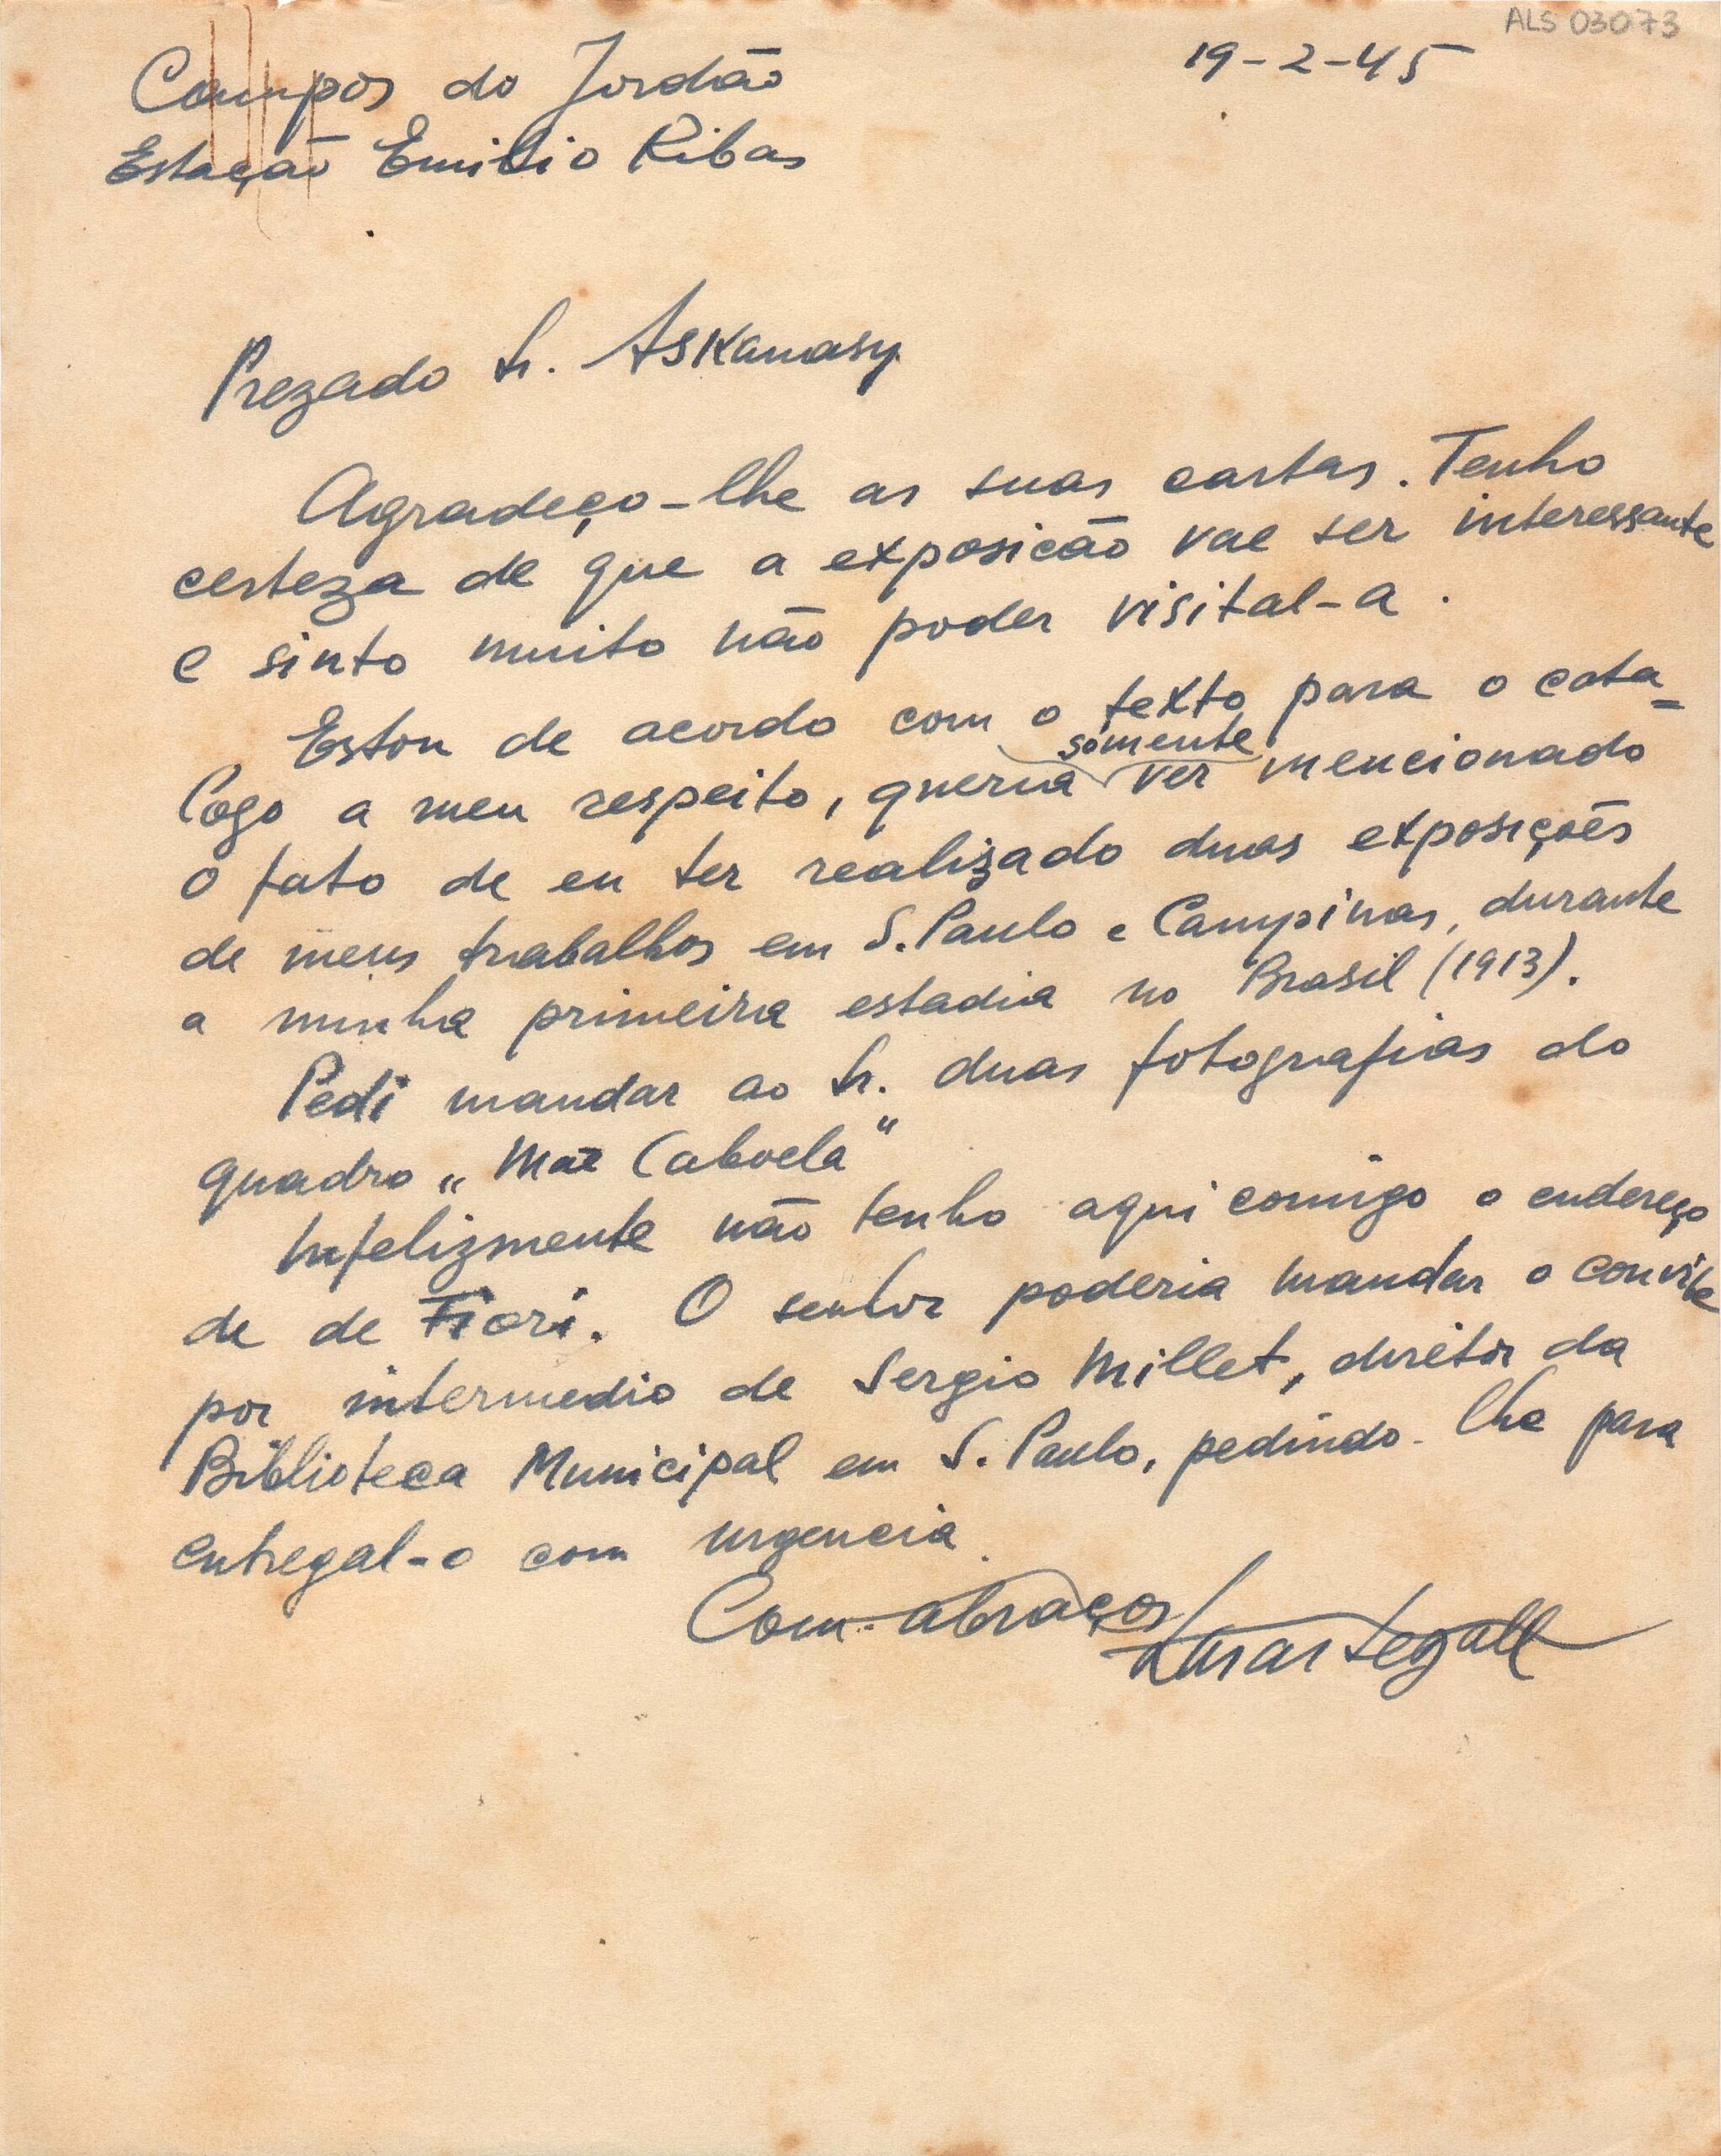 ALS 03073
Campos do Jordão 19-2-45
Estação Emilio Ribas
Prezado Sr. Askanasy
Agradeço-lhe as suas cartas. Tenho
certeza de que a exposicão vae ser interessante
e sinto muito não poder visital-a.
Estou de acordo com o texto para o cata=
logo a meu respeito, queria somente ver mencionado
o fato de eu ter realizado duas exposições
de meus trabalhos em S. Paulo e Campinas, durante
a minha primeira estadia no Brasil (1913).
Pedi mandar ao Sr. duas fotografias do
quadro „Mãe Cabocla"
Infelizmente não tenho aqui comigo o endereço
de de Fiori. O senhor poderia mandar o convite
por intermedio de Sergio Millet, diretor da
Biblioteca Municipal em S. Paulo, pedindo-lhe para
entregal-o com urgencia.
Com abraços
Lasar Segall